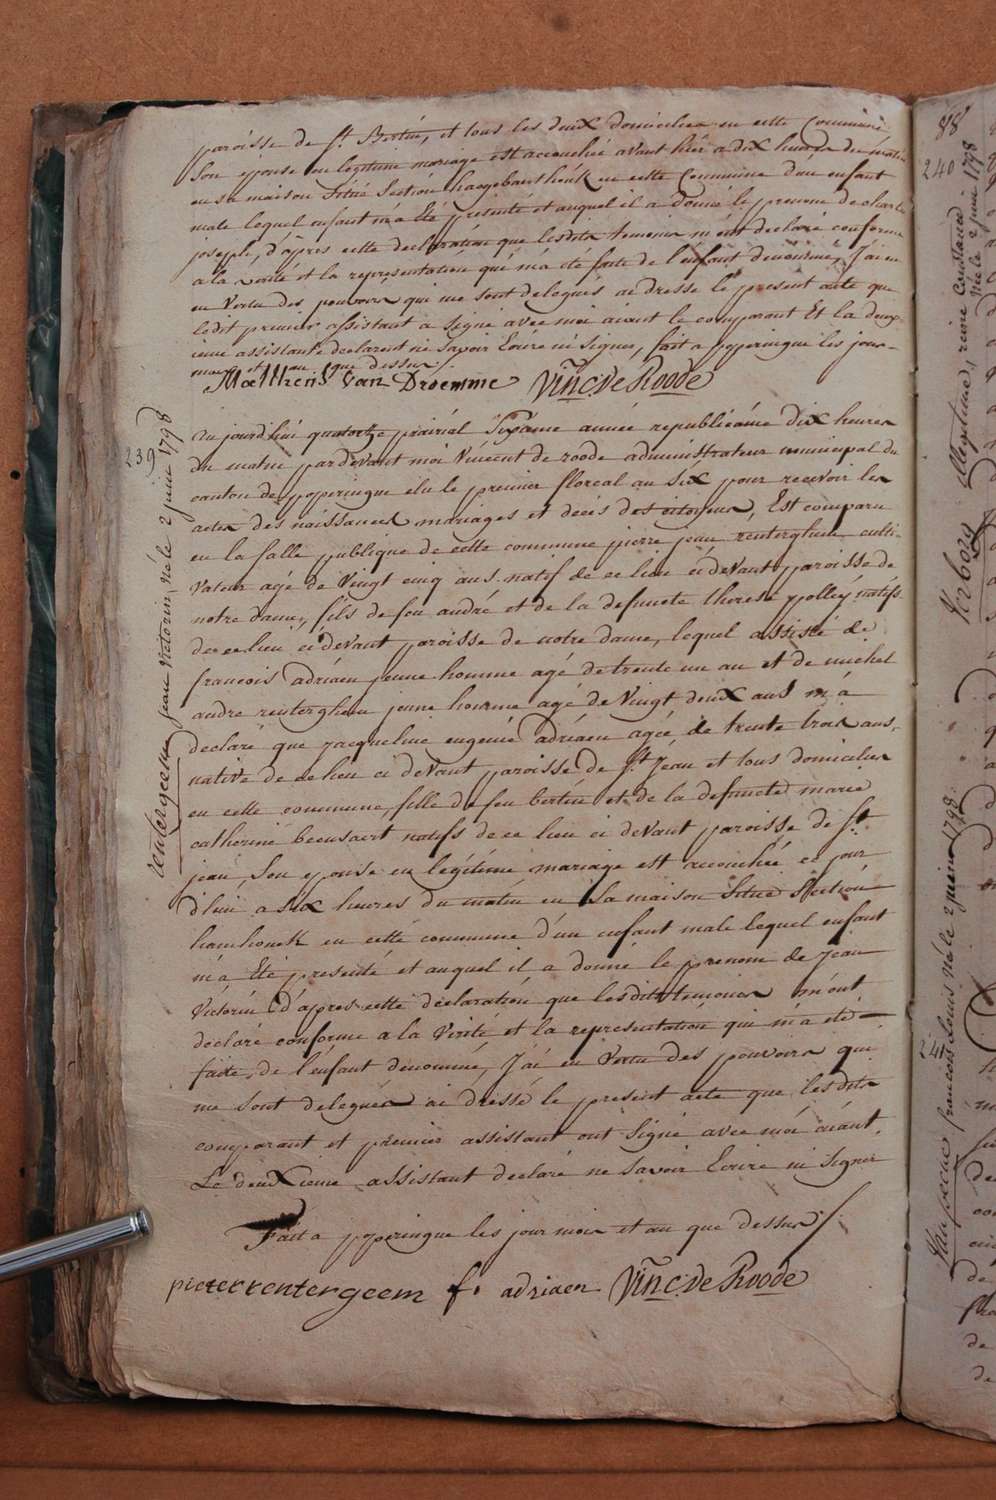 paroisse de St Bertin, et tous les deux domicilier en cette Commune
son epouse en legitime mariage est accouchée avant hier a dix heures du matin
en sa maison situé section haegebaerthouk en cette Commune d'un enfant
male lequel enfant m'a Eté presenté et auquel il a donné le prenom de charle
joseph, d'apres cette declaration que lesdits temoins m'ont declaré conforme
a la verité et la representation qui m'a été faite de l'enfant denommé, J'ai en
en Vertu des pouvoirs qui me sont delegués ai dressé le present acte que
ledit premier assistant a signé avec moi aiant le comparant Et la deux-
ieme assistante declarent ne savoir Ecrire ni signer, fait a poperingue les jour-
mois et an que dessus /.
Matthens van Droemme Vinc. De Roode
239
rentergeem jean victorin, né le 2 juin 1798
Aujourd'hui quatorze prairial Sixieme année republicaine Dix heures
du matin pardevant moi Vincent de roode administrateur municipal du
canton de poperingue élu le premier floreal an Six pour recevoir les
actes des naissances mariages et décés des citoyens, Est comparu
en la salle publique de cette commune pierre jean renterghem culti-
vateur agé de Vingt cinq ans natif de ce lieu ci devant paroisse de
notre dame, fils de feu andré et de la defuncte therese ypolley natifs
de ce lieu ci devant paroisse de notre dame, lequel assisté de
francois adriaen jeune homme agé de trente un an et de michel
andre renterghem jeune homme agé de Vingt deux ans m'a
declaré que jacqueline eugenie adriaen agée de trente trois ans,
native de ce lieu ci devant paroisse de St Jean et tous domicilier
en cette commune, fille de feu bertin et de la defuncte marie
catherine beeusaert natifs de ce lieu ci devant paroisse de St
jean, son epouse en legitime mariage est accouchée ce jour
d'hui a six heures du matin en sa maison située section
hamhouck en cette commune d'un enfant male lequel enfant
m'a Eté presenté et auquel il a donné le prenom de jean
Victorin D'apres cette declaration que lesdits temoins m'ont
declaré conforme a la Verité et la representation qui m'a été
faite, de l'enfant denommé, J'ai en Vertu des pouvoirs qui
me sont delegués ai dressé le present acte que lesdits
comparant et premier assistant ont signé avec moi aiant.
Le deuxieme assistant declaré ne savoir Ecrire ni signer
Fait a poperingue les jour mois et an que dessus /.
pieter rentergeem f. adriaen Vinc. De Roode
88
240
Verborg Albertine, reine Constance
née le 2 juin 1798
241
Van pecue francois Louis né le 2 juin 1798